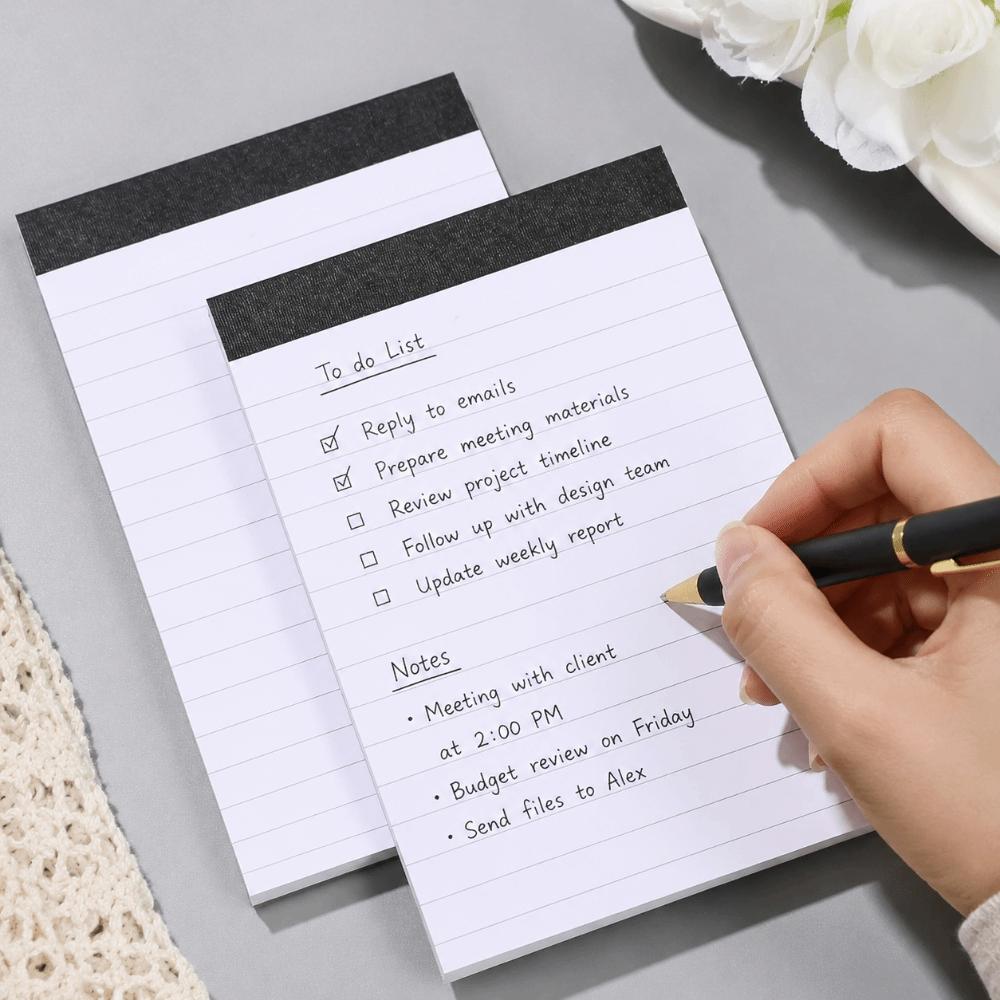 To do List
☑ Reply to emails
☑ Prepare meeting materials
☐ Review project timeline
☐ Follow up with design team
☐ Update weekly report
Notes
• Meeting with client
at 2:00 PM
• Budget review on Friday
• Send files to Alex